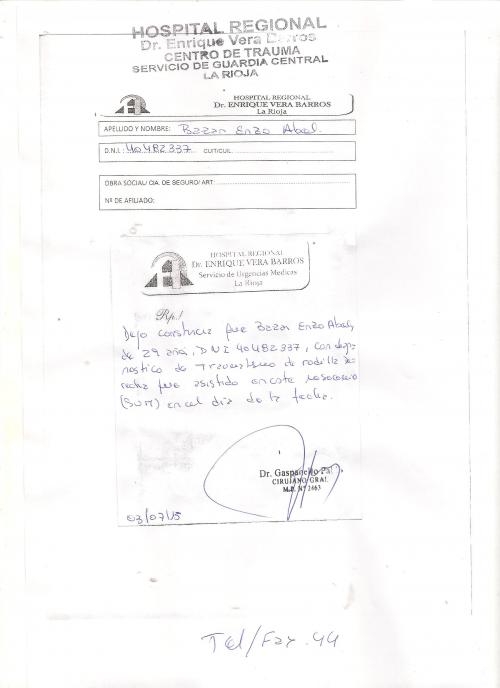 HOSPITAL REGIONAL
Dr. Enrique Vera Barros
CENTRO DE TRAUMA
SERVICIO DE GUARDIA CENTRAL
LA RIOJA
HOSPITAL REGIONAL
Dr. ENRIQUE VERA BARROS
La Rioja
APELLIDO Y NOMBRE: Bazan Enzo Abel.
D.N.I.: 40482337 CUIT/CUIL:
OBRA SOCIAL/ CIA. DE SEGURO/ ART:
Nº DE AFILIADO:
HOSPITAL REGIONAL
Dr. ENRIQUE VERA BARROS
Servicio de Urgencias Medicas
La Rioja
Rp./
Dejo constancia que Bazan Enzo Abel,
de 29 años, DNI 40482337, con diag-
nostico de Traumatismo de rodilla de-
recha fue asistido en este nosocomio
(SUM) en el dia de la fecha.
Dr. Gaspanello
CIRUJANO GRAL.
M.P. Nº 2463
03/07/15
Tel/Fax. 44